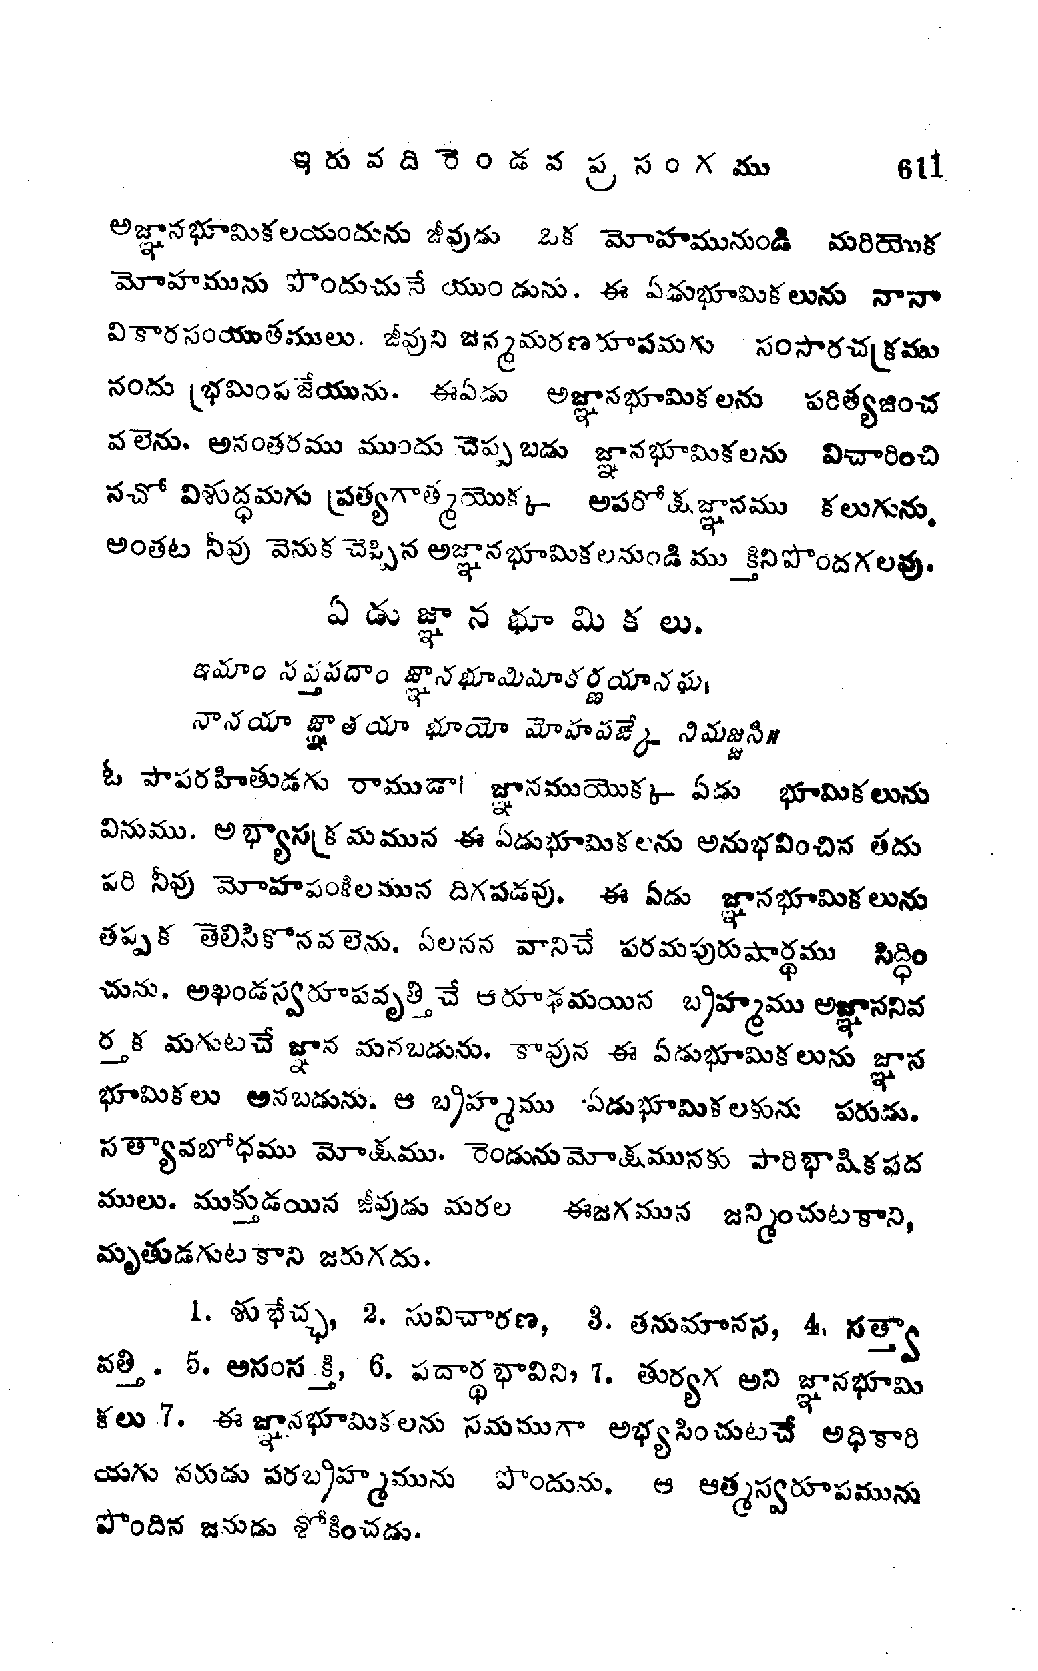 ఇరువదిరెండవప్రసంగము 611
అజ్ఞానభూమికలయందును జీవుడు ఒక మోహమునుండి మరియొక
మోహమును పొందుచునే యుండును. ఈ ఏడుభూమికలును నానా
వికారసంయుతములు. జీవుని జన్మమరణరూపమగు సంసారచక్రము
నందు భ్రమింపజేయును. ఈఏడు అజ్ఞానభూమికలను పరిత్యజించ
వలెను. అనంతరము ముందు చెప్పబడు జ్ఞానభూమికలను విచారించి
నచో విశుద్ధమగు ప్రత్యగాత్మయొక్క అపరోక్షజ్ఞానము కలుగును.
అంతట నీవు వెనుక చెప్పిన అజ్ఞానభూమికలనుండి ముక్తినిపొందగలవు.
ఏడుజ్ఞానభూమికలు.
ఇమాం సప్తపదాం జ్ఞానభూమిమాకర్ణయానఘ।
నానయా జ్ఞాతయా భూయో మోహపఙ్కే నిమజ్జసి॥
ఓ పాపరహితుడగు రాముడా! జ్ఞానముయొక్క ఏడు భూమికలును
వినుము. అభ్యాసక్రమమున ఈ ఏడుభూమికలను అనుభవించిన తదు
పరి నీవు మోహపంకిలమున దిగపడవు. ఈ ఏడు జ్ఞానభూమికలును
తప్పక తెలిసికొనవలెను. ఏలనన వానిచే పరమపురుషార్థము సిద్ధిం
చును. అఖండస్వరూపవృత్తిచే ఆరూఢమయిన బ్రహ్మము అజ్ఞాననివ
ర్తక మగుటచే జ్ఞాన మనబడును. కావున ఈ ఏడుభూమికలును జ్ఞాన
భూమికలు అనబడును. ఆ బ్రహ్మము ఏడుభూమికలకును పరుడు.
సత్యావబోధము మోక్షము. రెండునుమోక్షమునకు పారిభాషికపద
ములు. ముక్తుడయిన జీవుడు మరల ఈజగమున జన్మించుటకాని,
మృతుడగుటకాని జరుగదు.
1. శుభేచ్ఛ, 2. సువిచారణ, 3. తనుమానస, 4. సత్త్వా
వత్తి. 5. అసంసక్తి, 6. పదార్థభావిని, 7. తుర్యగ అని జ్ఞానభూమి
కలు 7. ఈ జ్ఞానభూమికలను సమముగా అభ్యసించుటచే అధికారి
యగు నరుడు పరబ్రహ్మమును పొందును. ఆ ఆత్మస్వరూపమును
పొందిన జనుడు శోకించడు.